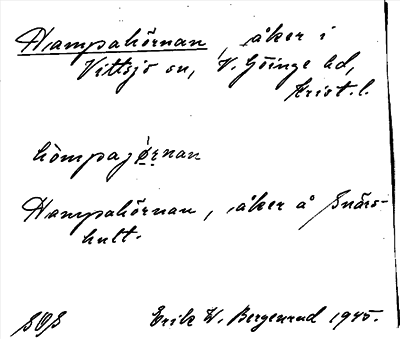 Hampahörnan, åker i
Vittsjö sn, V. Göinge hd,
Krist. l.
Hampahörnan, åker å Snärs-
hult.
SOS Erik W. Bergenrud 1945.